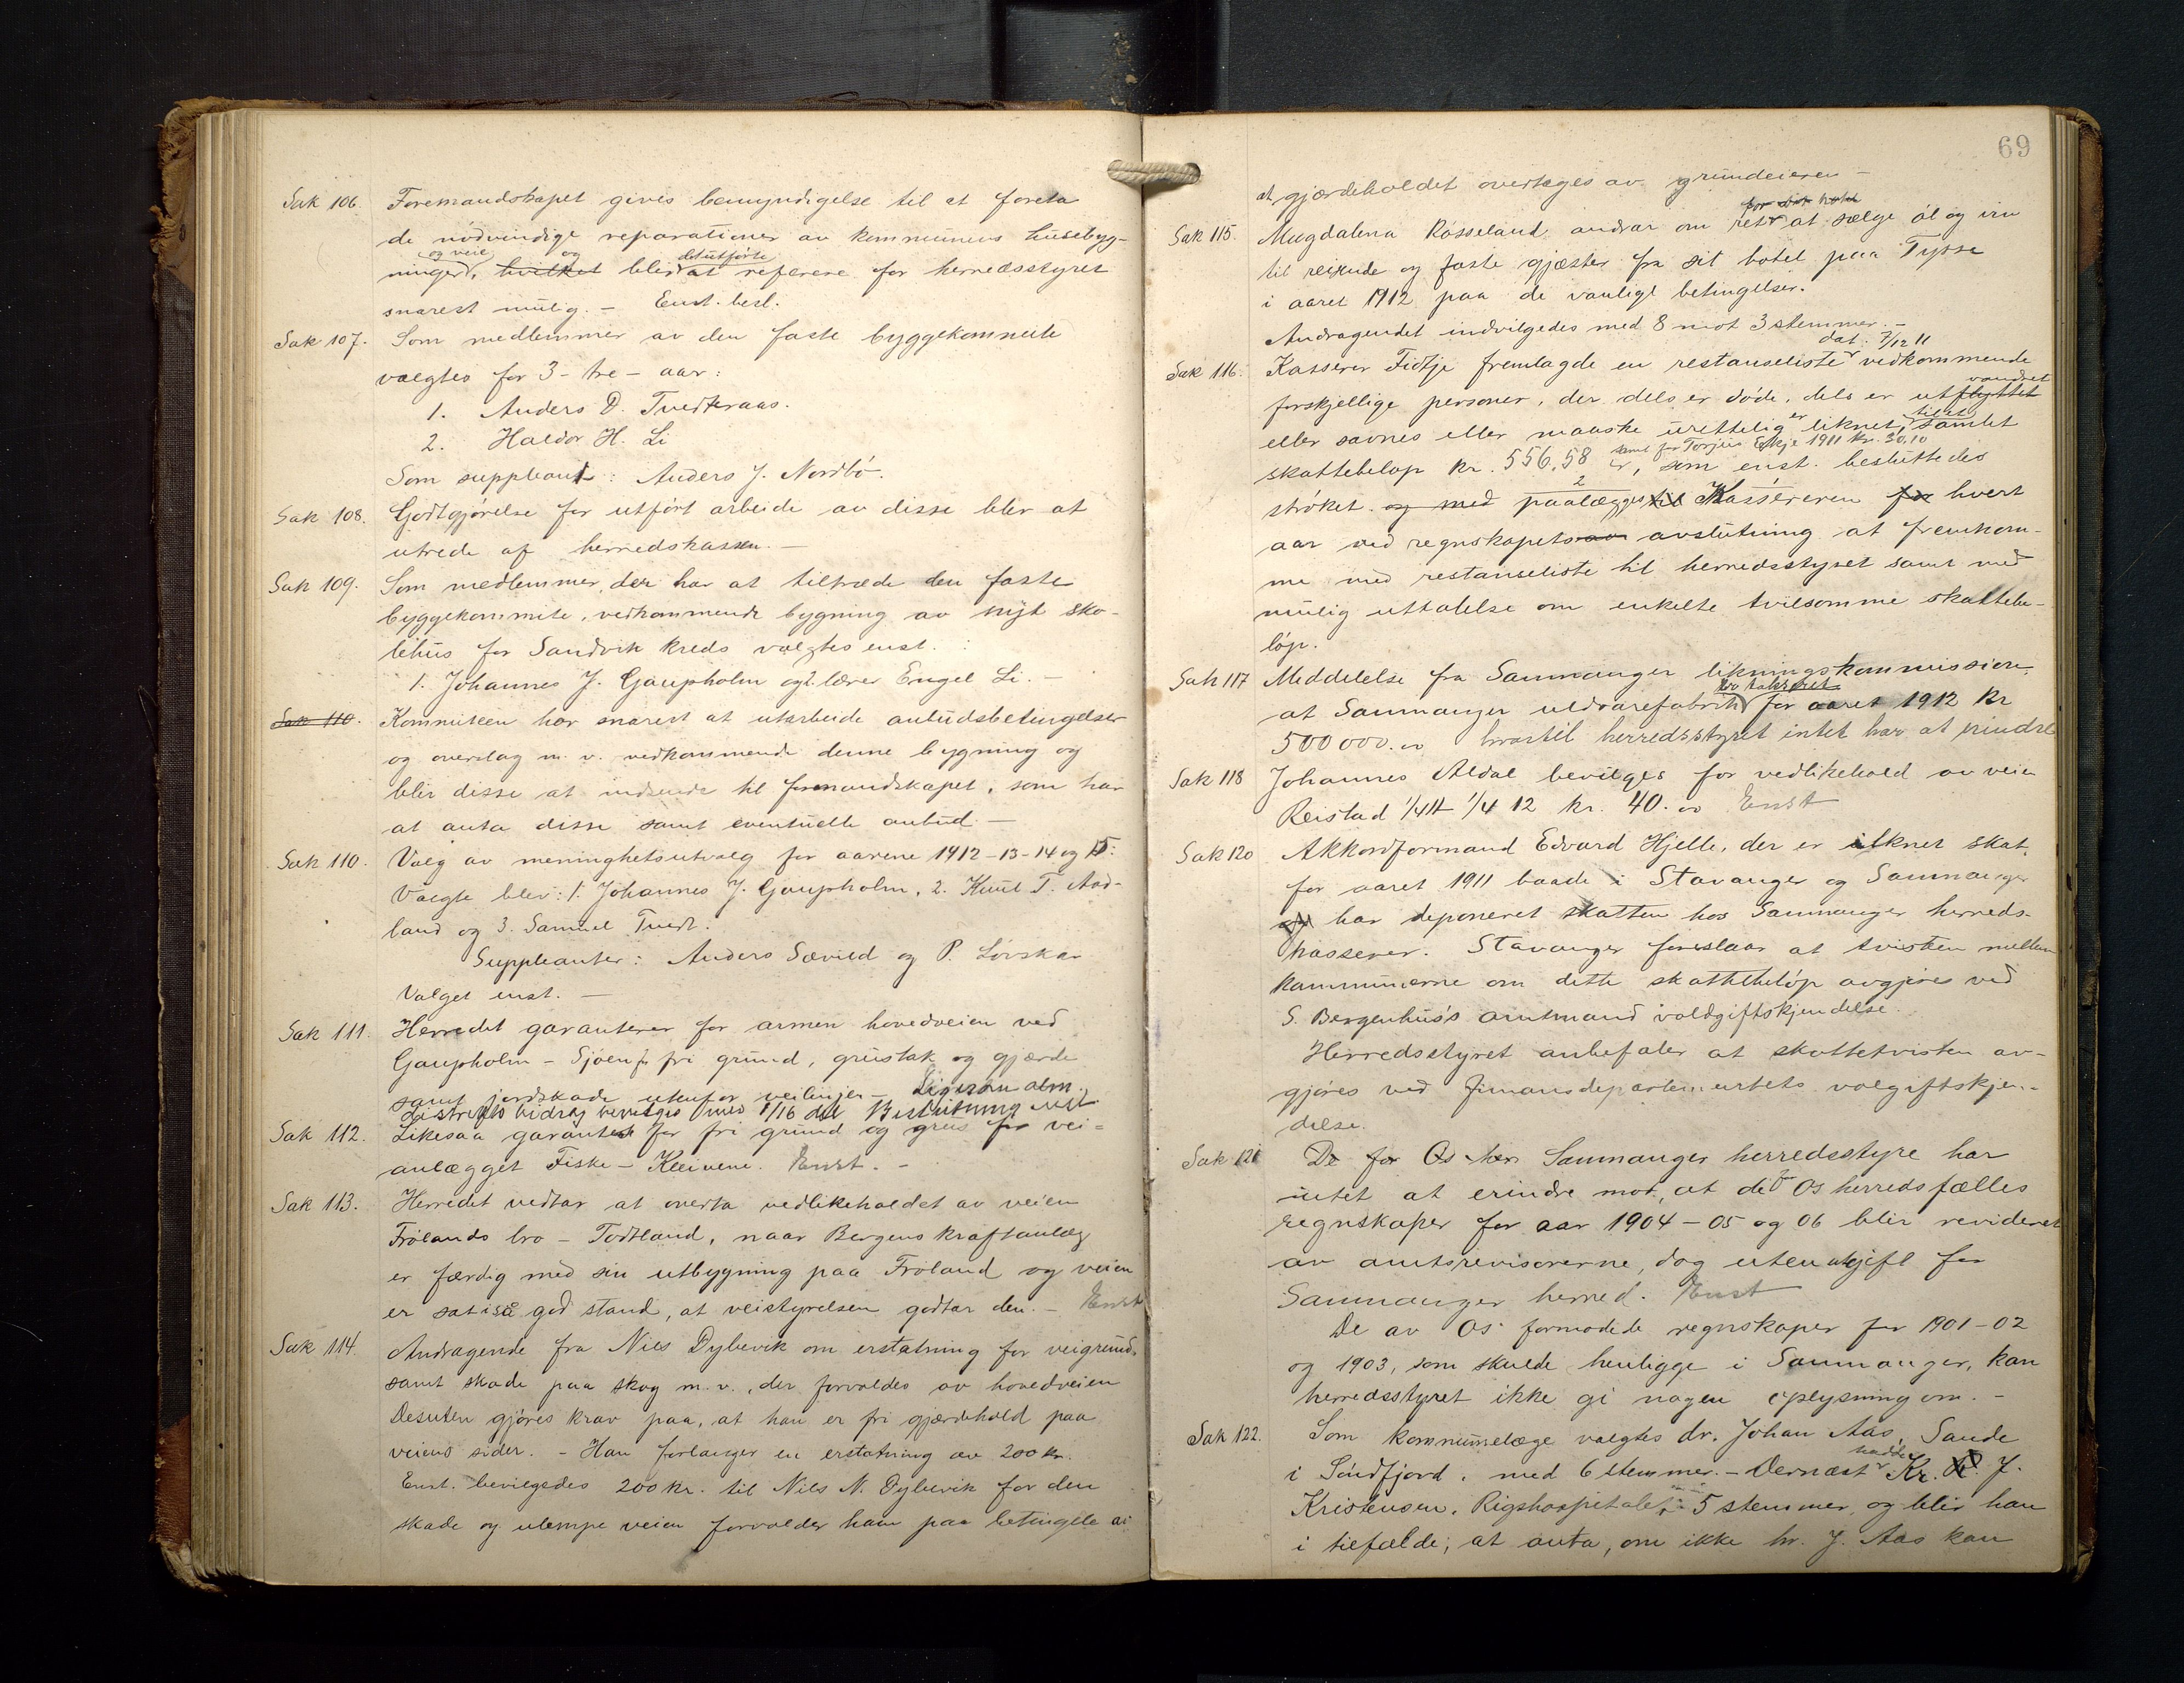 Sak 106. Foremandskapet gives bemyndigelse til at foreta
de nødvendige reparationer av kommunens husebyg-
og veie og det utførte
ninger, hvilket blir at referere for herredsstyret
snarest mulig. - Enst. besl.
Sak 107. Som medlemmer av den faste byggekomite
valgtes for 3 - tre - aar:
1. Anders D. Tvedteraas.
2. Haldor H. Li
Som suppleant: Anders J. Nordbø.
Sak 108. Godtgjørelse for utført arbeide av disse blir at
utrede af herredskassen. -
Sak 109. Som medlemmer, der har at tiltræde den faste
byggekommite, vedkommende bygning av nyt sko-
lehus for Sandvik kreds valgtes enst. :
1. Johannes J. Gaupholm og 2. lærer Engel Li. -
Sak 110. Kommiteen har snarest at utarbeide anbudsbetingelser
og overslag m. v. vedkommende denne bygning og
blir disse at indsende til formandskapet, som har
at anta disse samt eventuelle anbud. -
Sak 110. Valg av menighetsutvalg for aarene 1912-13-14 og 15:
Valgte blev: 1. Johannes J. Gaupholm, 2. Knut T. Aad-
land og 3. Samuel Tvedt.
Suppleanter: Anders Sævild og P. Løvskar
Valget enst. -
Sak 111. Herredet garanterer for armen hovedveien ved
Gaupholm - Sjøen fri grund, grustak og gjærde
samt jordskade utenfor veilinjen - Ligesom alm.
Distrikts bidrag bevilges med 1/16 del Beslutning enst.
Sak 112. Likesaa garantert for fri grund og grus for vei-
anlægget Fiske - Kleivene. Enst. -
Sak 113. Herredet vedtar at overta vedlikeholdet av veien
Frølands bro - Todtland, naar Bergens kraftanlæg
er færdig med sin utbygning paa Frøland og veien
er sat i så god stand, at veistyrelsen godtar den. - Enst
Sak 114. Andragende fra Nils Dybevik om erstatning for veigrund
samt skade paa skog m. v., der forvoldes av hovedveien
Desuten gjøres krav paa, at han er fri gjærdehold paa
veiens sider. - Han forlanger en erstatning av 200 kr.
Enst. bevilgedes 200 kr. til Nils N. Dybevik for den
skade og ulempe veien forvolder ham paa betingelse av
69
at gjærdeholdet overtages av grundeieren -
for sit hotel
Sak 115. Magdalena Røsseland andrar om ret at sælge øl og vin
til reisende og faste gjæster fra sit hotel paa Tysse
i aaret 1912 paa de vanlige betingelser.
Andragendet indvilgedes med 8 mot 3 stemmer. -
dat: 7/12 11
Sak 116. Kasserer Tidtje fremlagde en restanseliste vedkommende
vandret
forskjellige personer, der dels er døde, dels er utflyttet
er til at
eller savnes eller maaske urettelig liknet, samlet
samt for Torjus Eskje 1911 kr. 30,10
skattebeløp kr. 556,58 , som enst. besluttedes
2
strøket og med paalægges til Kassereren for hvert
aar ved regnskapets av avslutning at fremkom-
me med restanseliste til herredsstyret samt med
mulig uttalelse om enkelte tvilsomme skattebe-
løp.
Sak 117 Meddelelse fra Samnanger likningskommission,
er takseret
at Samnanger uldvarefabrik for aaret 1912 kr
500000.00 hvortil herredsstyret intet har at erindre
Sak 118 Johannes Aldal bevilges for vedlikehold av veien
Reistad 1/4 11 1/4 12 kr. 40.00 Enst
Sak 120 Akkordformand Edvard Hjelle, der er iliknet skat
for aaret 1911 baade i Stavanger og Samnanger
og har deponeret skatten hos Samnanger herreds-
kasserer. Stavanger foreslaar at tvisten mellem
kommunerne om dette skattebeløp avgjøres ved
S. Bergenhus's amtmand voldgiftskjendelse.
Herredsstyret anbefaler at skattetvisten av-
gjøres ved Finansdepartementets volgiftskjen-
delse.
Sak 121 De for Os her Samnanger herredsstyre har
intet at erindre mot, at de for Os herreds fælles
regnskaper for aar 1904-05 og 06 blir revideret
av amtsrevisorerne, dog uten utgift for
Samnanger herred. Enst
De av Os formodede regnskaper for 1901-02
og 1903, som skulde henligge i Samnanger, kan
herredsstyret ikke gi nogen oplysning om. -
Sak 122. Som kommunelæge valgtes dr. Johan Aas, Sande
hadde
i Søndfjord, med 6 stemmer. - Dernæst Kr. J.
Kristensen, Rigshospitalet 5 stemmer, og blir han
i tilfælde, at anta, om ikke hr. J. Aas kan